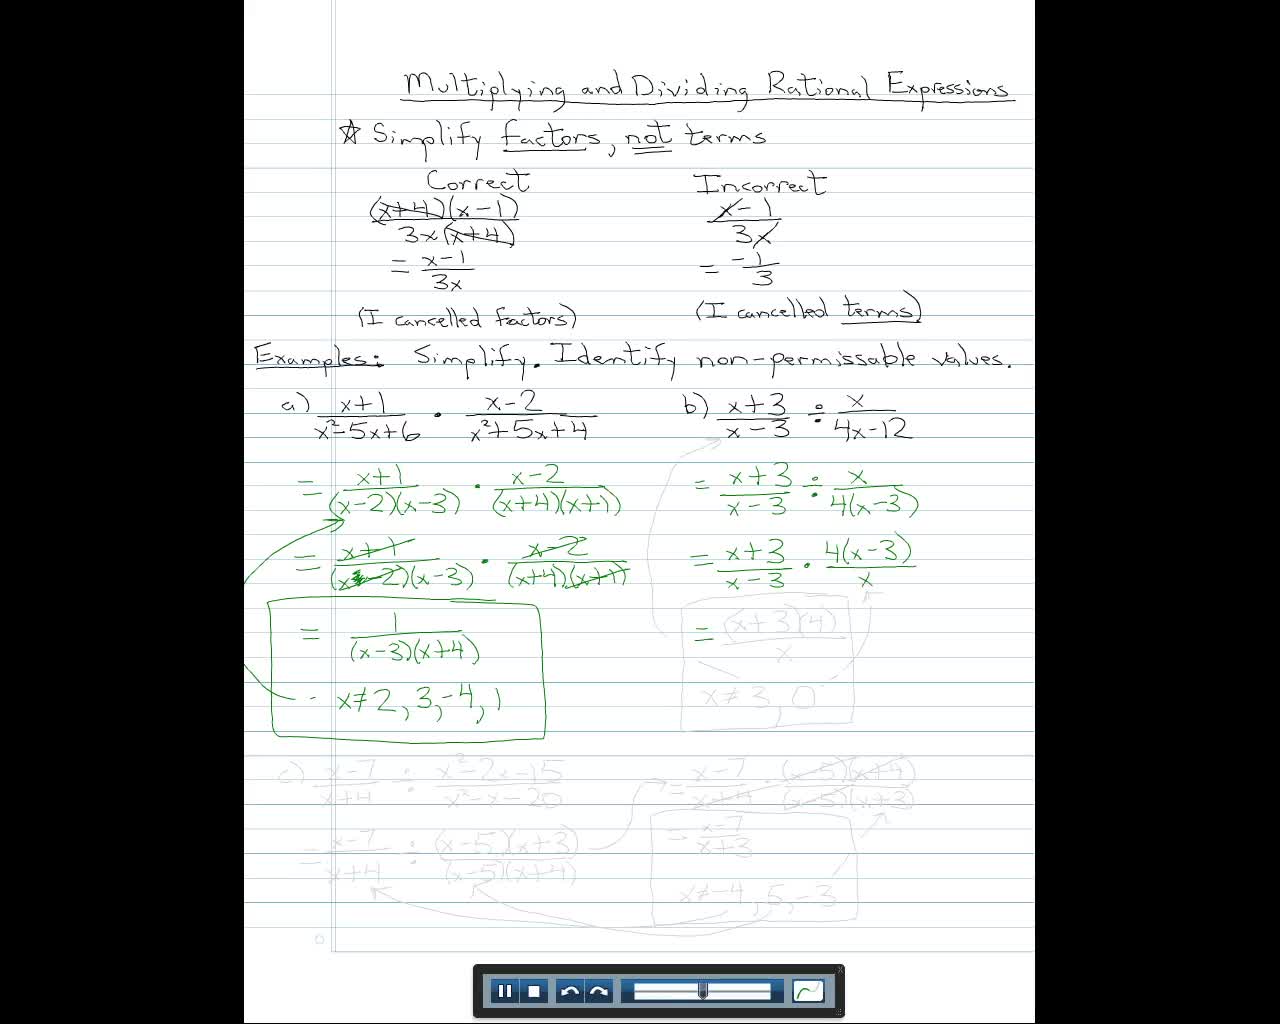 Multiplying and Dividing Rational Expressions
☆ Simplify factors, not terms
Correct
(x+4)(x-1)
3x(x+4)
= x-1
3x
(I cancelled factors)
Incorrect
x-1
3x
= -1
3
(I cancelled terms)
Examples: Simplify. Identify non-permissable values.
a) x+1 / x²-5x+6 · x-2 / x²+5x+4
= x+1 / (x-2)(x-3) · x-2 / (x+4)(x+1)
= x+1 / (x-2)(x-3) · x-2 / (x+4)(x+1)
= 1 / (x-3)(x+4)
x≠2, 3, -4, 1
b) x+3 / x-3 ÷ x / 4x-12
= x+3 / x-3 ÷ x / 4(x-3)
= x+3 / x-3 · 4(x-3) / x
= (x+3)(4) / x
x≠3, 0
c) x-7 / x+4 ÷ x²-2x-15 / x²-x-20
= x-7 / x+4 ÷ (x-5)(x+3) / (x-5)(x+4)
= x-7 / x+4 · (x-5)(x+4) / (x-5)(x+3)
= x-7 / x+3
x≠-4, 5, -3